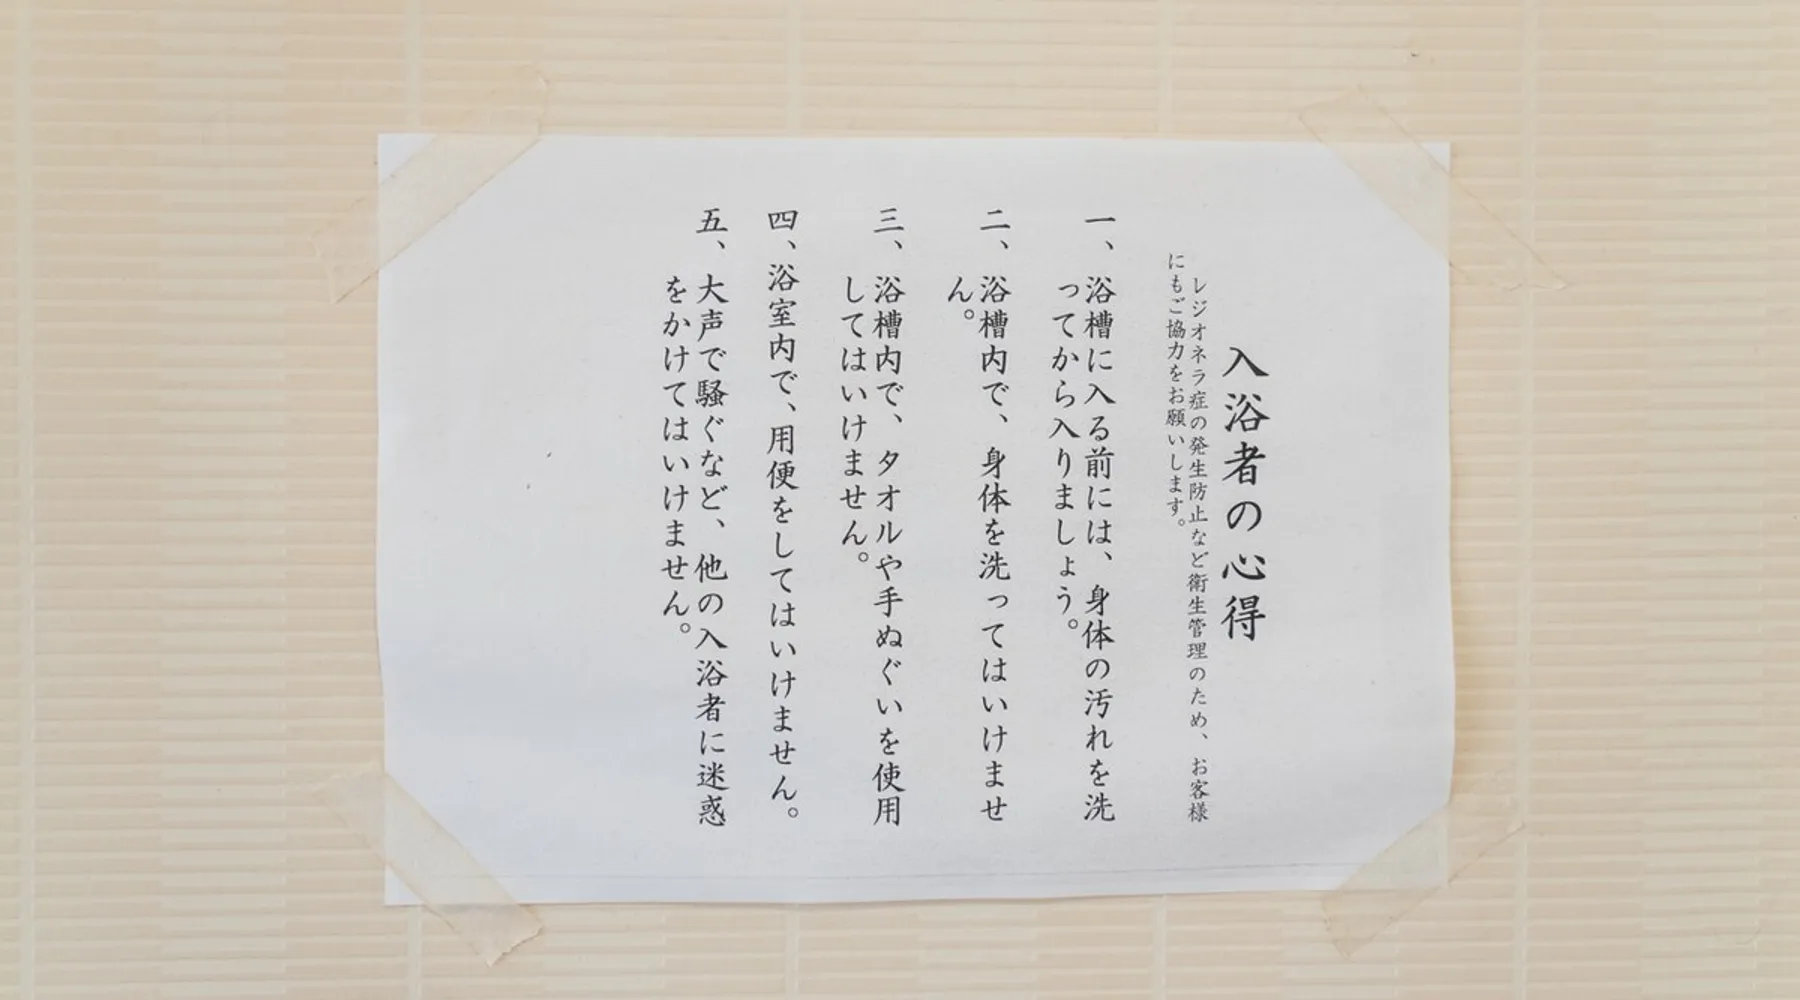 入浴者の心得
レジオネラ症の発生防止など衛生管理のため、お客様
にもご協力をお願いします。
一、浴槽に入る前には、身体の汚れを洗
ってから入りましょう。
二、浴槽内で、身体を洗ってはいけませ
ん。
三、浴槽内で、タオルや手ぬぐいを使用
してはいけません。
四、浴室内で、用便をしてはいけません。
五、大声で騒ぐなど、他の入浴者に迷惑
をかけてはいけません。